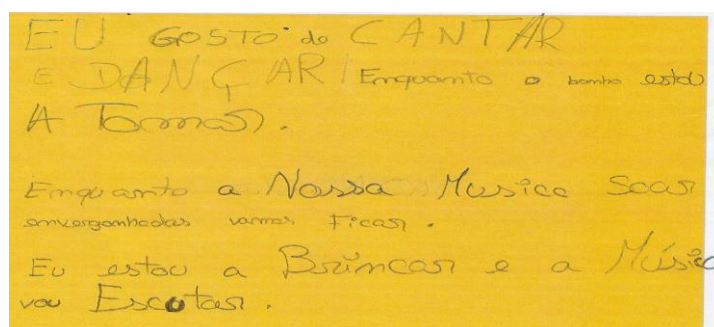 EU GOSTO de CANTAR
E DANÇAR Enquanto o banho estou
A Tomar.
Enquanto a Nossa Musica Soar
envergonhadas vamos Ficar.
Eu estou a Brincar e a Músic
vou Escutar.